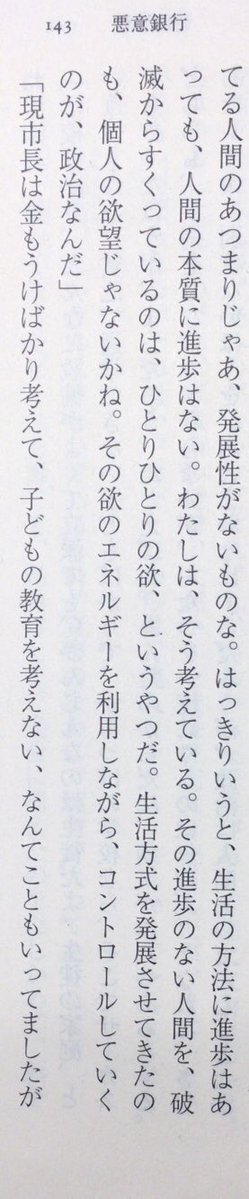 143　悪意銀行
てる人間のあつまりじゃあ、発展性がないものな。はっきりいうと、生活の方法に進歩はあ
っても、人間の本質に進歩はない。わたしは、そう考えている。その進歩のない人間を、破
滅からすくっているのは、ひとりひとりの欲、というやつだ。生活方式を発展させてきたの
も、個人の欲望じゃないかね。その欲のエネルギーを利用しながら、コントロールしていく
のが、政治なんだ」
「現市長は金もうけばかり考えて、子どもの教育を考えない、なんてこともいってましたが